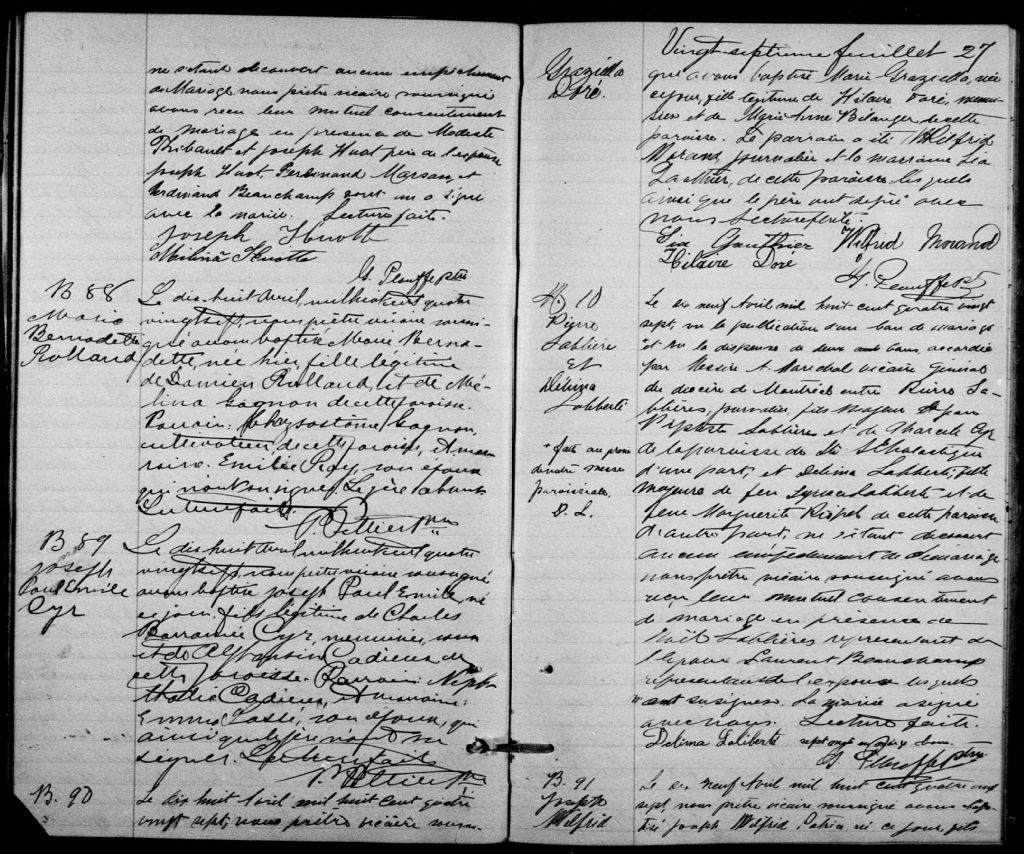 ne s'étant découvert aucun empêchement
de Mariage nous prêtre vicaire soussigné
avons reçu leur mutuel consentement
de mariage en présence de Modeste
Thibault et Joseph Huot père de l'épouse
Joseph Huot. Ferdinand Marsan et
Ferdinand Beauchamp
avec la mariée. Lecture faite.
Joseph Huotte
Mélina Huotte
G. Plouffe ptre
B 88
Marie
Bernadette
Rolland
Le dix huit Avril, mil huit cent quatre
vingt sept, nous prêtre vicaire soussi-
gné avons baptisé Marie Berna-
dette, née hier, fille légitime
de Damien Rolland, et de Mé-
lina Gagnon de cette paroisse.
Parrain: Chrysostôme Gagnon,
cultivateur, de cette paroisse, et mar-
raine Emilie Roy, son épouse
qui n'ont su signer. Le père absent
Lecture faite.
P. Pelletier ptre
B 89
Joseph
Paul Emile
Cyr
Le dix huit Avril mil huit cent quatre
vingt sept, nous prêtre vicaire soussigné
avons baptisé Joseph Paul Emile, né
ce jour, fils légitime de Charles
Cyr, menuisier,
et de Alphonsine Cadieux de
cette paroisse. Parrain: Neph-
thalie Cadieux, et marraine:
Emma son épouse, qui
ainsi que le père n'ont su
signer. Lecture faite
P. Pelletier ptre
B. 90
Le dix huit Avril mil huit cent quatre
vingt sept, nous prêtre vicaire soussi-
Vingt-septième feuillet 27
Graziella
Doré.
gné avons baptisé Marie Graziella, née
ce jour, fille légitime de Hilaire Doré, menui-
sier et de Marie Anne Bélanger de cette
paroisse. Le parrain a été Wilfrid
Morand, journalier et la marraine Léa
Gauthier, de cette paroisse, lesquels
ainsi que le père ont signé avec
nous. Lecture faite.
Léa Gauthier Wilfrid Morand
Hilaire Doré
G. Plouffe ptre
M. 10
Pierre
Lablière
Et
Délima
Laliberté
+ faite au prone
de notre messe
paroissiale.
D. L.
Le dix neuf Avril mil huit cent quatre vingt
sept, vu la publication d'un ban de mariage
et vu la dispense de deux bans, accordée
par Messire A. Maréchal vicaire général
du diocèse de Montréal entre Pierre La-
blières, journalier, fils majeur de Jean
Bptiste Lablières et de Marcele Cyr
de la paroisse de Ste Scholastique
d'une part, et Delima Laliberté, fille
majeure de feu Ignace Laliberté et de
feue Marguerite Riopel de cette paroisse
d'autre part, ne s'étant découvert
aucun empêchement de mariage
nous prêtre vicaire soussigné avons
reçu leur mutuel consentement
de mariage en présence de
Noël Lablières représentant de
l'époux Laurent Beauchamp
représentant de l'épouse lesquels
n'ont su signer. La mariée a signé
avec nous. Lecture faite.
Delima Laliberté
G. Plouffe ptre
B. 91
Joseph
Wilfrid
Le dix neuf Avril mil huit cent quatre vingt
sept, nous prêtre vicaire soussigné avons bap-
tisé Joseph Wilfrid né ce jour, fils